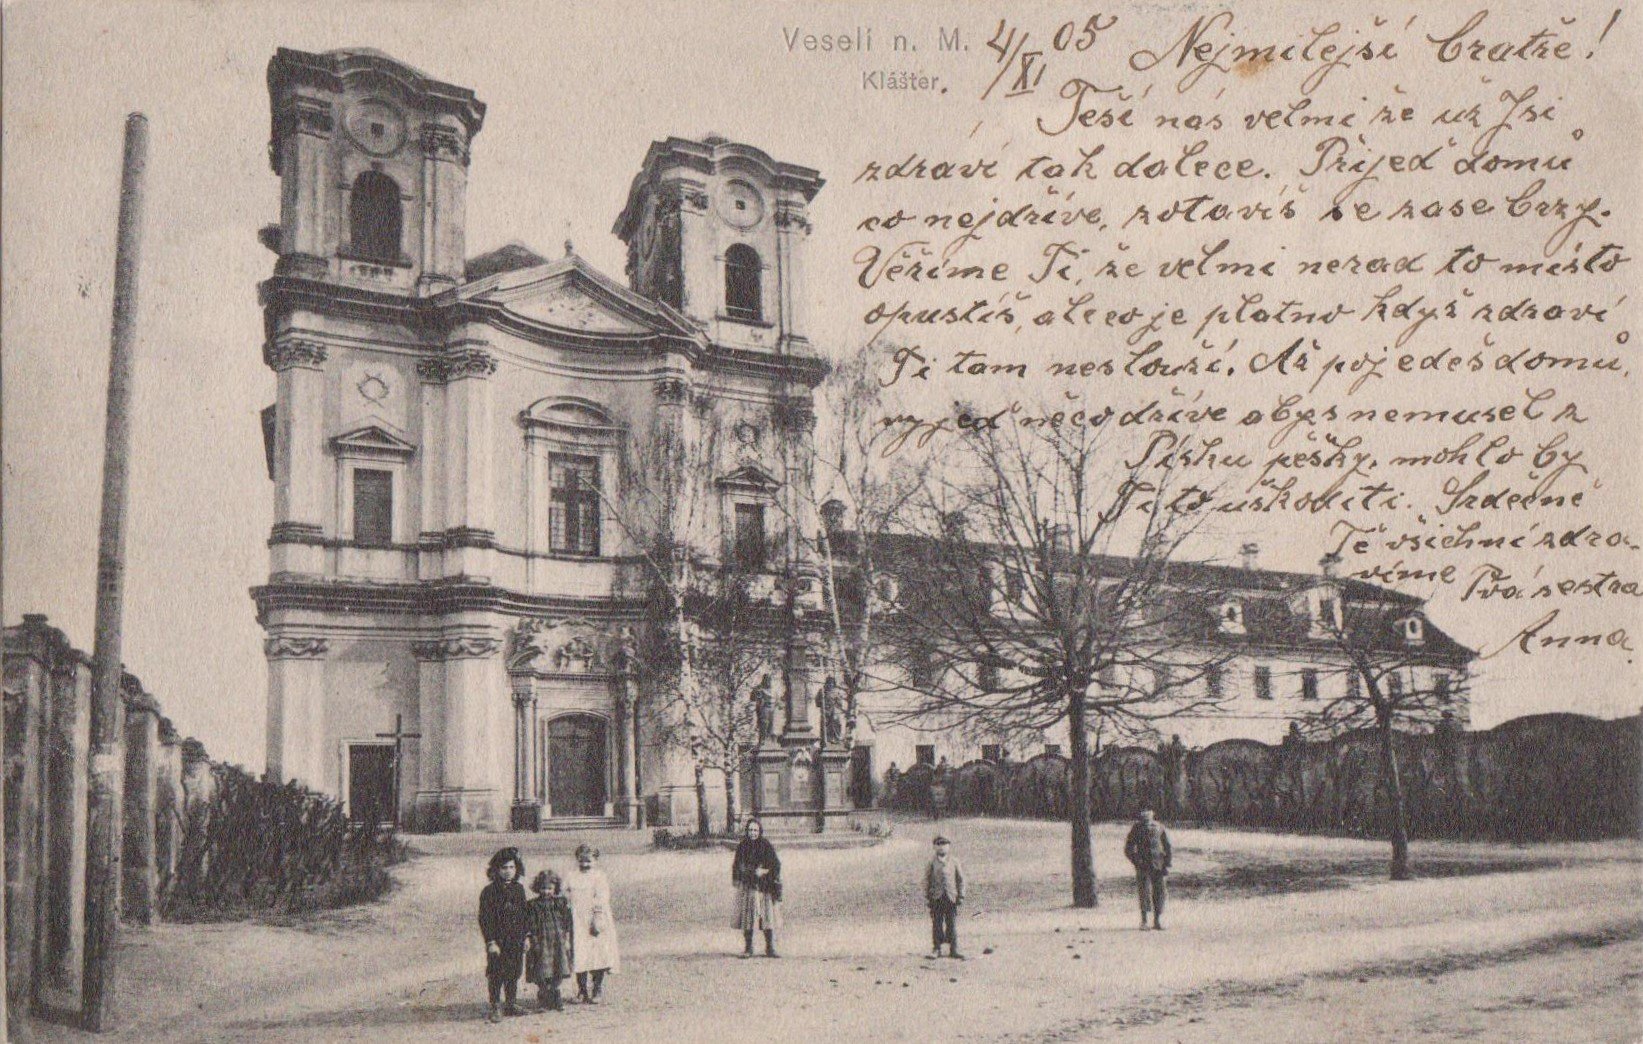 Veselí n. M.
Klášter.
4/XI 05 Nejmilejší bratře!
Těší nás velmi že už Jsi
zdráví tak dalece. Přijeď domů
co nejdříve, zotavíš se zase brzy.
Věříme Ti, že velmi nerad to místo
opustíš, ale co je platno když zdraví
Ti tam neslouží. Až pojedeš domů,
vyjeď něco dříve abys nemusel z
Písku pěšky, mohlo by
Ti to uškoditi. Srdečně
Tě všichni zdra-
víme Tvá sestra
Anna.